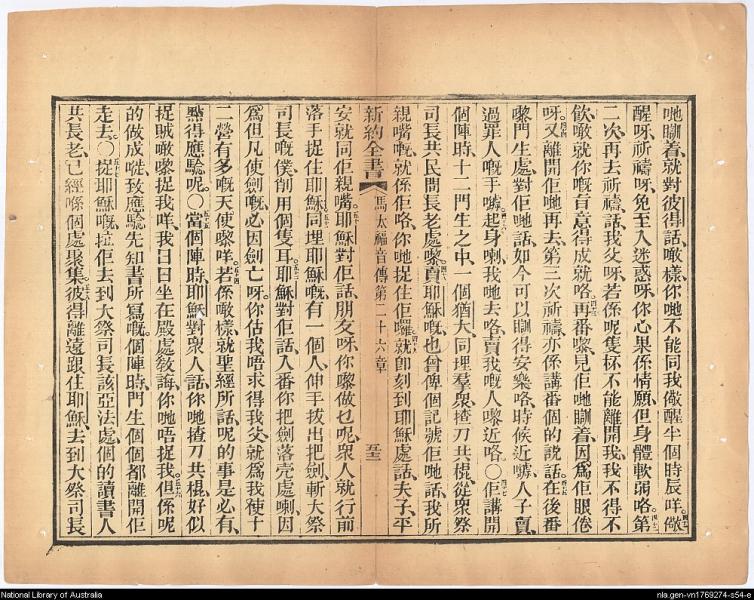 哋瞓着、就對彼得話、噉樣、你哋不能同我儆醒半個時辰咩、儆
醒呀、祈禱呀、免至入迷惑呀、你心果係情願、但身體軟弱咯。第
二次再去祈禱話、我父呀、若係呢隻杯不能離開我、我不得不
飲、噉就你嘅旨意得成就咯。再番嚟、見佢哋瞓着、因爲佢眼倦
呀。又離開佢哋再去、第三次祈禱、亦係講番個的說話。在後番
嚟門生處、對佢哋話、如今可以瞓得安樂咯、時候近嚹、人子賣
過罪人嘅手嚹、起身喇、我哋去咯、賣我嘅人嚟近咯。〇佢講開
個陣時、十二門生之中、一個猶大、同埋羣衆揸刀共棍、從衆祭
司長共民間長老處嚟。賣耶穌嘅、也曾俾個記號佢哋話、我所
親嘴嘅、就係佢咯、你哋捉住佢囉。就卽刻到耶穌處話、夫子、平
新約全書 馬太福音傳第二十六章 五十三
安、就同佢親嘴。耶穌對佢話、朋友呀、你嚟做乜呢、衆人就行前
落手捉住耶穌。同埋耶穌嘅、有一個人、伸手拔出把劍、斬大祭
司長嘅僕、削用個隻耳。耶穌對佢話、入番你把劍落壳處喇、因
爲但凡使劍嘅、必因劍亡呀。你估我唔求得我父、就爲我使十
二營有多嘅天使嚟咩。若係噉樣、就聖經所話、呢的事是必有、
點得應驗呢。〇當個陣時、耶穌對衆人話、你哋揸刀共棍、好似
捉賊噉嚟捉我咩、我日日坐在殿處敎誨、你哋唔捉我。但係呢
的做成嘥、致應驗先知書所寫嘅。個陣時、門生個個都離開佢
走去。〇捉耶穌嘅、拉佢去到大祭司長該亞法處、個的讀書人
共長老、已經喺個處聚集。彼得離遠跟住耶穌、去到大祭司長
National Library of Australia
nla.gen-vn1769274-s54-e